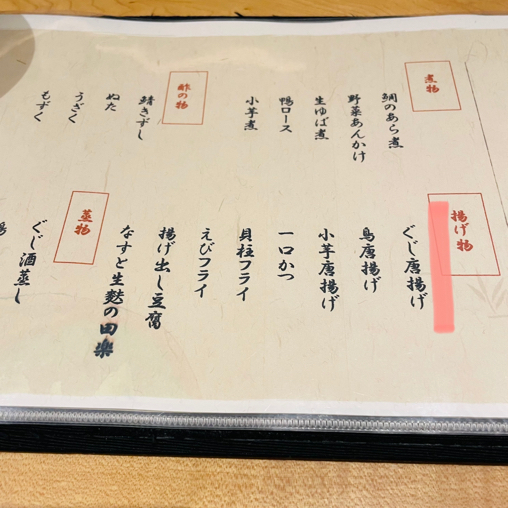 煮物
鯛のあら煮
野菜あんかけ
生ゆば煮
鴨ロース
小芋煮
酢の物
鯖きずし
ぬた
うざく
もずく
揚げ物
ぐじ唐揚げ
鳥唐揚げ
小芋唐揚げ
一口かつ
貝柱フライ
えびフライ
揚げ出し豆腐
なすと生麩の田楽
蒸物
ぐじ酒蒸し